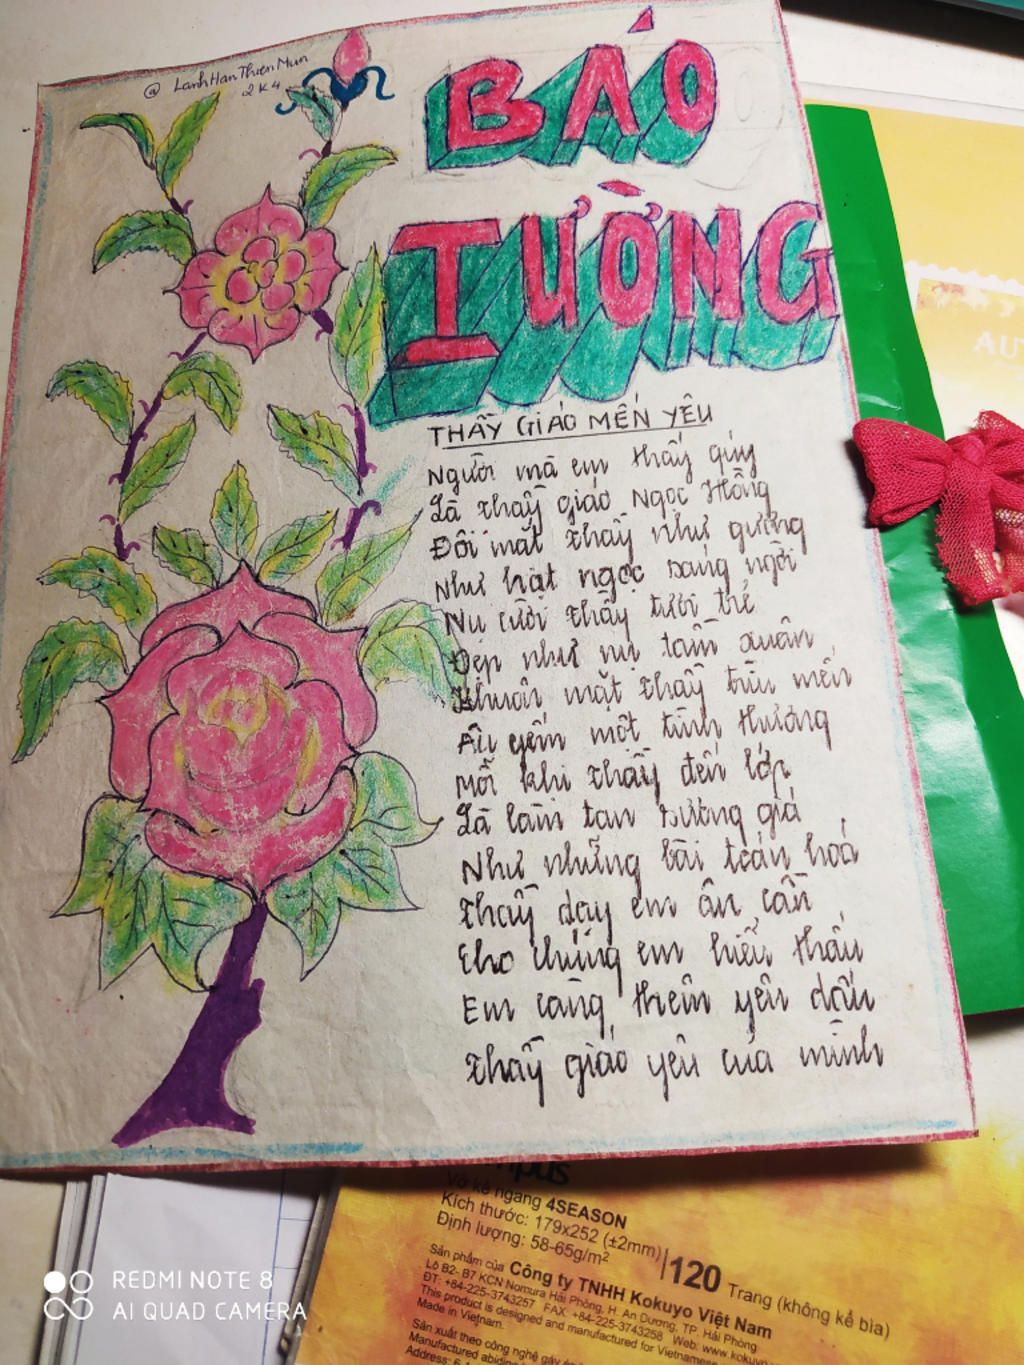 @ LanhHanThienMun
2K4
BÁO
TƯỜNG
THẦY GIÁO MẾN YÊU
Người mà em thấy qúy
Là thầy giáo Ngọc Hồng
Đôi mắt thầy như gương
Như hạt ngọc sáng ngời
Nụ cười thầy tươi trẻ
Đẹp như nụ tầm xuân
Khuôn mặt thầy trìu mến
Âu yếm một tình thương
Mỗi khi thầy đến lớp
Là làm tan sương giá
Như những bài toán hoá
Thầy dạy em ân cần
Cho chúng em hiểu thấu
Em càng thêm yêu dấu
Thầy giáo yêu của mình
AU
mpus
Vở kẻ ngang 4SEASON
Kích thước: 179x252 (±2mm)
Định lượng: 58-65g/m²
120 Trang (không kể bìa)
Sản phẩm của Công ty TNHH Kokuyo Việt Nam
Lô B2- B7 KCN Nomura Hải Phòng, H. An Dương, TP. Hải Phòng
ĐT: +84-225-3743257 FAX: +84-225-3743258 Web: www.kokuyo
This product is designed and manufactured for Vietnamese
Made in Vietnam.
Sản xuất theo công nghệ gáy
Manufactured
Address:
REDMI NOTE 8
AI QUAD CAMERA